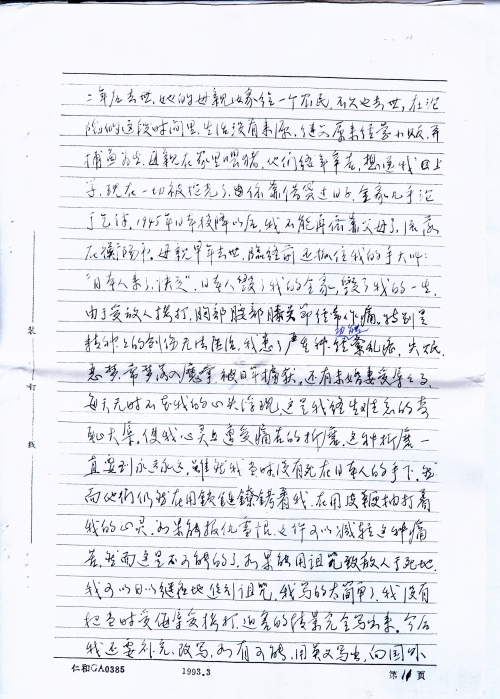 二年后去世，她的母亲改嫁给一个农民，不久也去世，在沦
陷的这段时间里，生活没有来源，继父原来经营小贩，再
捕鱼为生，母亲在家里喂猪，他们终年辛苦，想送我上
学，现在一切被抢光了，只依靠借贷过日子，全家几乎沦
于乞讨，1945年日本投降以后，我不能再依靠父母了，流落
在 母亲早年去世，临终前还抓住我的手大叫：
“日本人来了，快走”，日本人毁了我的全家，毁了我的一生，
由于受敌人拷打，胸部腹部膝关节经常作痛，特别是
精神上的创伤无法医治，我患了严重神经功能紊乱症，失眠
恶梦，常梦落入魔掌被日军捕获，还有未婚妻受辱之事，
每天无时不在我的心头浮现，这是我终生难忘的奇
耻大辱，使我心灵上遭受痛苦的折磨，这种折磨一
直要到永远永远，虽然我当时没有死在日本人的手下，然
而他们仍然在用铁链镣铐着我，在用皮鞭抽打着
我的心灵，如果能报仇雪恨，也许可以减轻这种痛
苦，然而这是不可能的了，如果能用诅咒致敌人于死地，
我可以日以继夜地 诅咒，我写的太简单了，我没有
把当时受侮辱受拷打，迫害的情景完全写出来。今后
我还要补充，改写，如有可能，用英文写出，向国外
装
订
线
仁和GA0385
1993.3
第 11 页